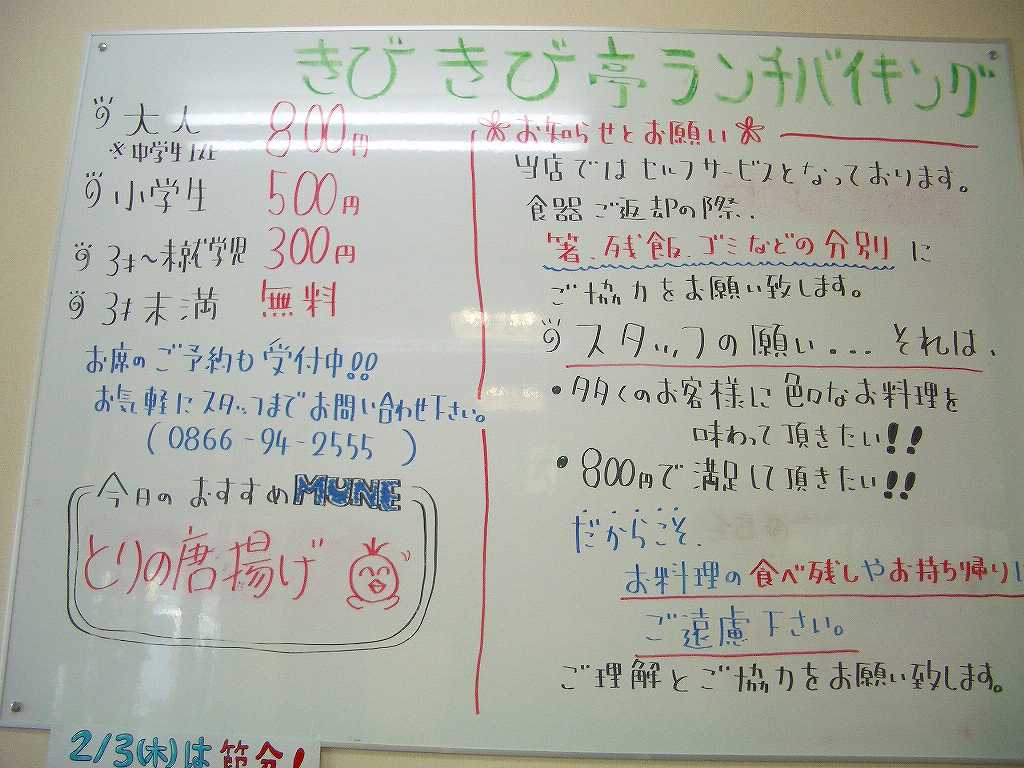 きびきび亭ランチバイキング
大人 800円
※中学生以上
小学生 500円
3才〜未就学児 300円
3才未満 無料
お席のご予約も受付中!!
お気軽にスタッフまでお問い合わせ下さい。
(0866-94-2555)
今日のおすすめMUNE
とりの唐揚げ
お知らせとお願い
当店ではセルフサービスとなっております。
食器ご返却の際、
箸、残飯、ゴミなどの分別に
ご協力をお願い致します。
スタッフの願い...それは、
・多くのお客様に色々なお料理を
味わって頂きたい!!
・800円で満足して頂きたい!!
だからこそ、
お料理の食べ残しやお持ち帰りは
ご遠慮下さい。
ご理解とご協力をお願い致します。
2/3(木)は節分!